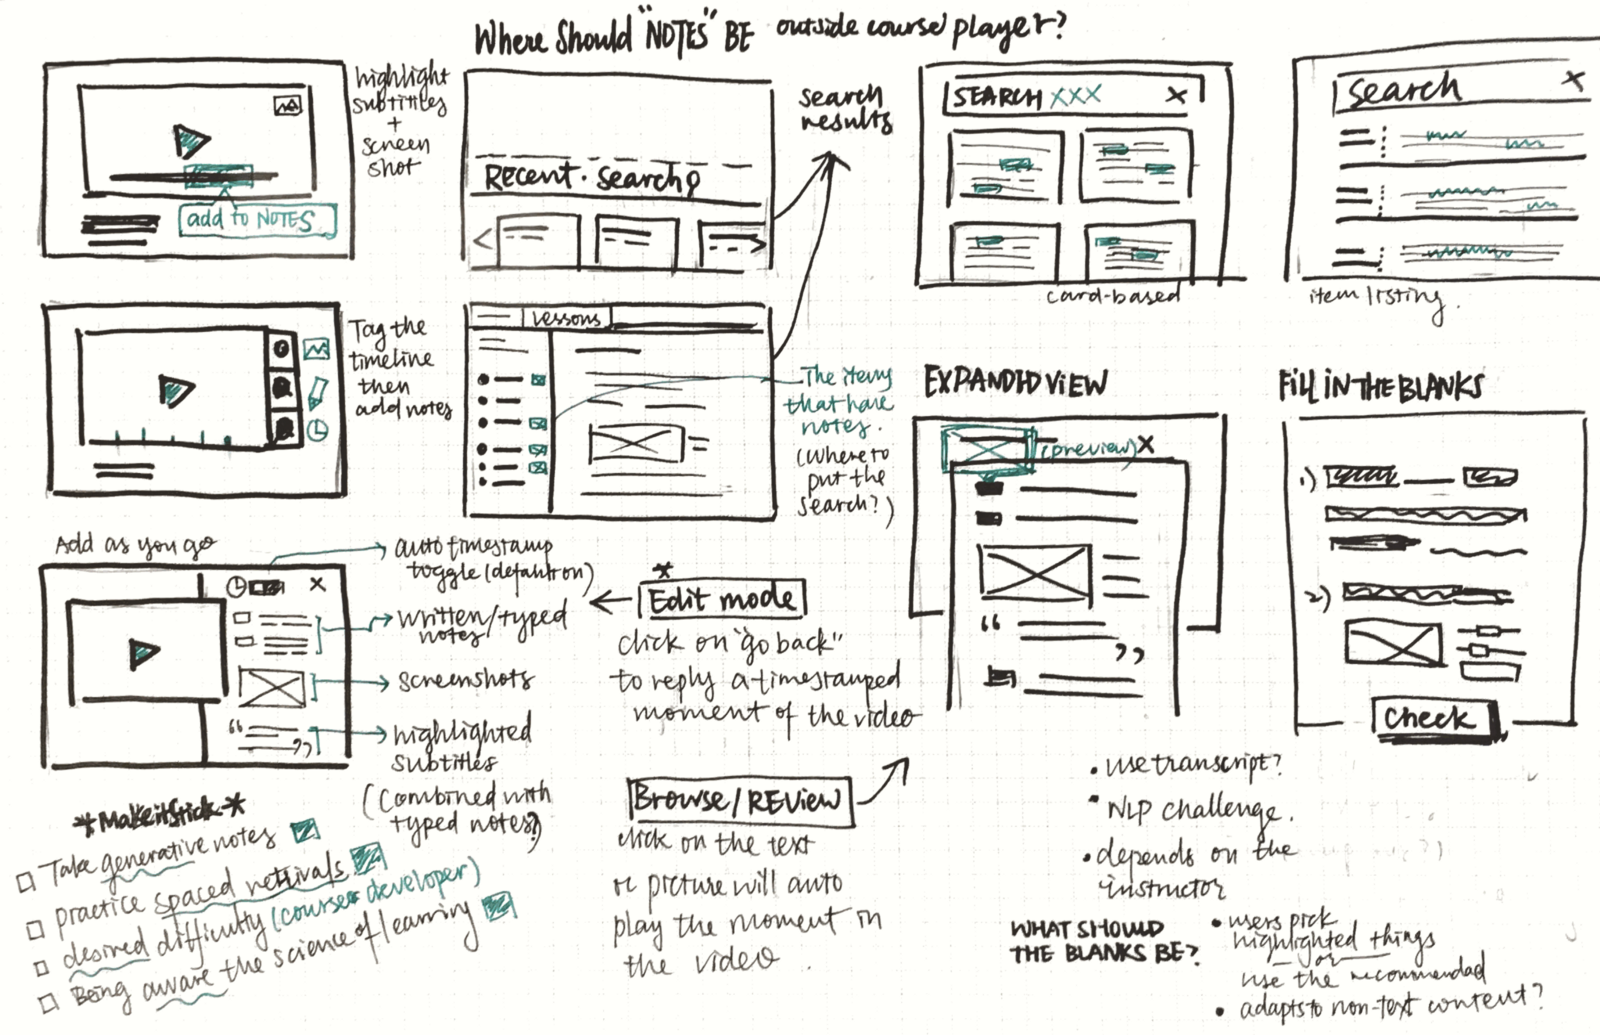 Where Should "NOTES" BE outside course player?
highlight
subtitles
+
screen
shot
add to NOTES
Recent. search
search
results
SEARCH XXX X
card-based
search X
item listing.
Tag the
timeline
then
add notes
Lessons
The items
that have
notes.
(Where to
put the
search?)
EXPANDED VIEW
(preview) X
“
”
Fill IN THE BLANKS
1)
2)
Check
Add as you go
X
“
”
auto timestamp
toggle (default on)
written/typed
notes
screenshots
highlighted
subtitles
(Combined with
typed notes?)
*
Edit mode
click on "go back"
to reply a timestamped
moment of the video
Browse/REVIEW
click on the text
or picture will auto
play the moment in
the video.
* Make it Stick *
Take generative notes
practice spaced retrivals
desired difficulty (course developer)
Being aware the science of learning
• use transcript?
• NLP challenge.
• depends on the
instructor
WHAT SHOULD
THE BLANKS BE?
• users pick
highlighted things
or
use the recommended
• adapts to non-text content?